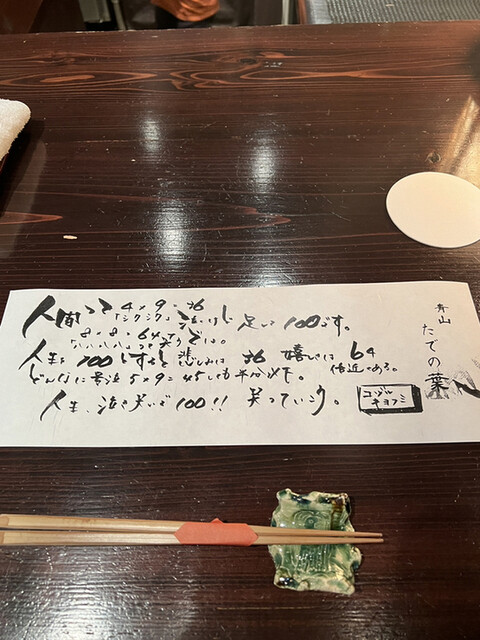 青山
たでの葉
人間って 4×9=36
「シクシク」泣いて 足して 100です。
8×8=64で
「ハハハハ」って笑う
人生を 100とすると 悲しみは 36 嬉しさは 64
倍近くある。
どんなに号泣 5×9=45しても半分以下。
人生、泣き笑いで100!! 笑っていこう。
コヅル
キヨフミ